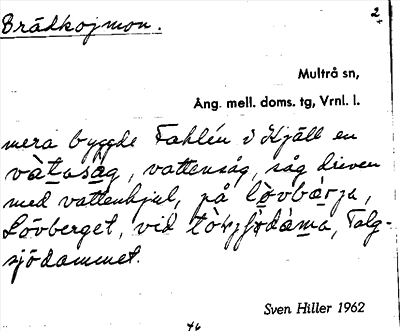 Brädkojmon.
2
Multrå sn,
Ång. mell. doms. tg, Vrnl. l.
mera byggde Fahlén i Hjäll en
vàtaság, vattensåg, såg driven
med vattenhjul, på lòvbàrja,
Lövberget, vid Talg-
sjödammet.
Sven Hiller 1962